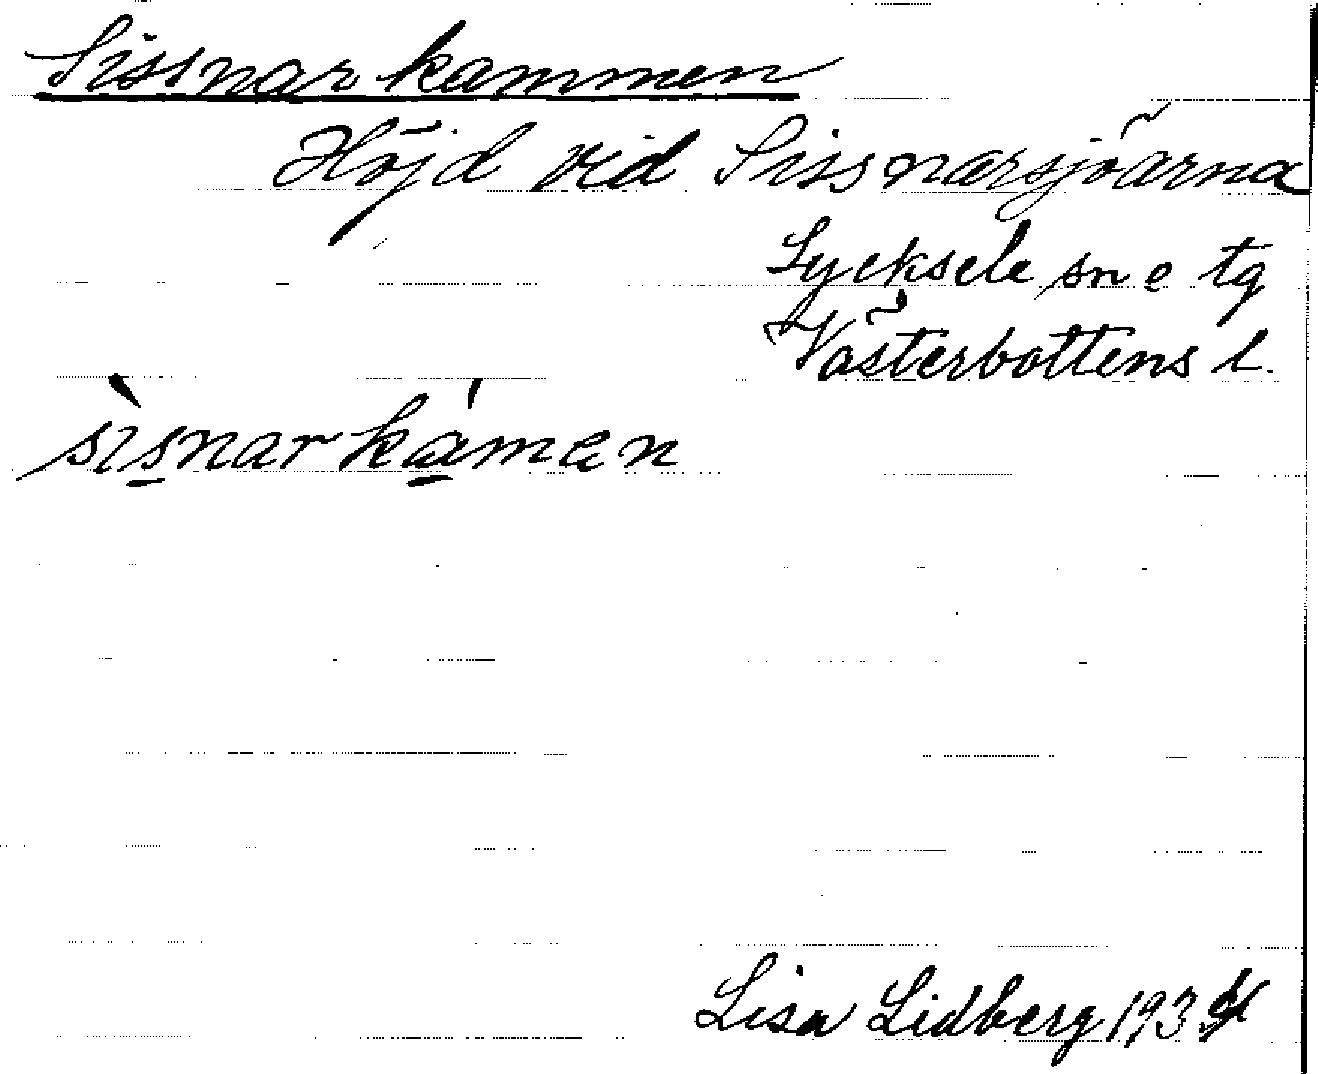 Sissnarkammen
Höjd vid Sissnarsjöarna
Lycksele sn o tg
Västerbottens l.
sìs̱narká̱men
Lisa Lidberg